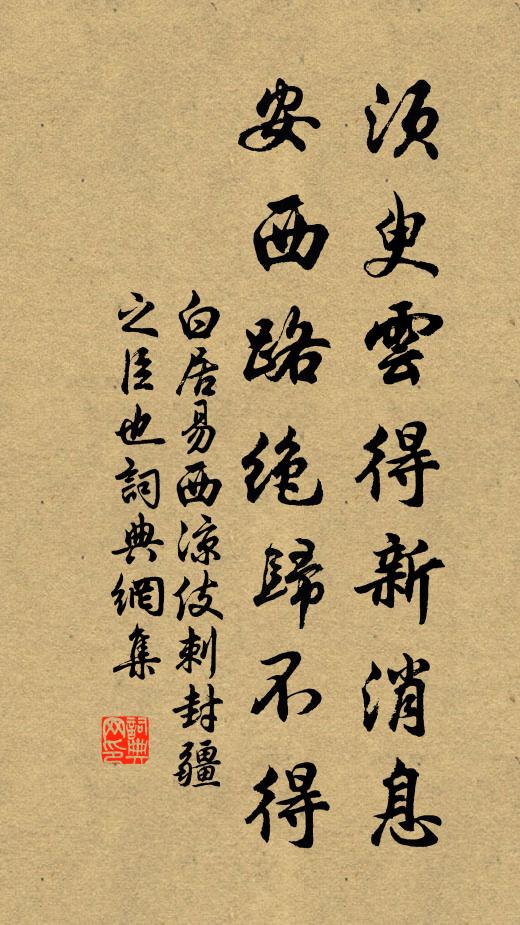 須臾雲得新消息
安西路絶歸不得
白居易西涼伎刺封疆
之臣也詞典網集
詞典網印